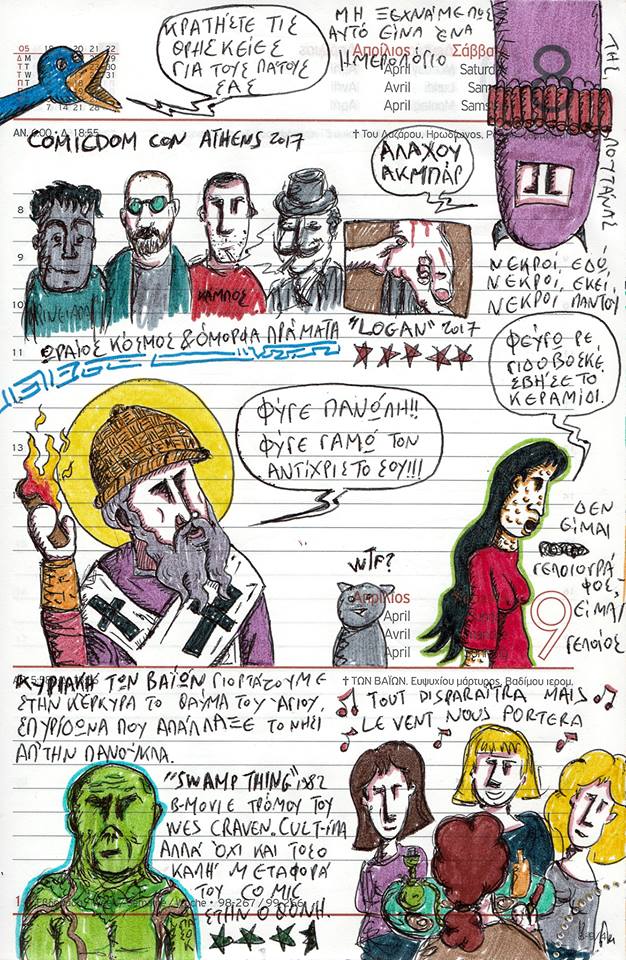 ΚΡΑΤΗΣΤΕ ΤΙΣ
ΘΡΗΣΚΕΙΕΣ
ΓΙΑ ΤΟΥΣ ΠΑΤΟΥΣ
ΣΑΣ
ΜΗ ΞΕΧΝΑΜΕ ΠΩΣ
ΑΥΤΟ ΕΙΝΑΙ ΕΝΑ
ΗΜΕΡΟΛΟΓΙΟ
Απρίλιος
April
Avril
April
05
18:55
† Του Λαζάρου, Ηρωδίωνος,
ΤΗΣ
ΠΟΥΤΑΝΑΣ
COMICDOM CON ATHENS 2017
ΑΛΑΧΟΥ
ΑΚΜΠΑΡ
8
9
10
11
13
ΚΑΜΠΟΣ
ΝΕΚΡΟΙ, ΕΔΩ,
ΝΕΚΡΟΙ, ΕΚΕΙ,
ΝΕΚΡΟΙ ΠΑΝΤΟΥ
ΩΡΑΙΟΣ ΚΟΣΜΟΣ & ΟΜΟΡΦΑ ΠΡΑΜΑΤΑ
"LOGAN" 2017
ΦΕΥΓΩ ΡΕ
ΓΙΔΟΒΟΣΚΕ
ΣΒΗΣΕ ΤΟ
ΚΕΡΑΜΙΔΙ.
ΦΥΓΕ ΠΑΝΩΛΗ!!
ΦΥΓΕ ΓΑΜΩ ΤΟΝ
ΑΝΤΙΧΡΙΣΤΟ ΣΟΥ!!!
WTF?
ΔΕΝ
ΕΙΜΑΙ
ΓΕΛΟΙΟΓΡΑ
ΦΟΣ,
ΕΙΜΑΙ
ΓΕΛΟΙΟΣ
Απρίλιος
April
Avril
April
9
† ΤΩΝ ΒΑΪΩΝ. Ευψυχίου μάρτυρος, Βαδίμου ιερομ.
ΚΥΡΙΑΚΗ ΤΩΝ ΒΑΪΩΝ ΓΙΟΡΤΑΖΟΥΜΕ
ΣΤΗΝ ΚΕΡΚΥΡΑ ΤΟ ΘΑΥΜΑ ΤΟΥ ΑΓΙΟΥ,
ΣΠΥΡΙΔΩΝΑ ΠΟΥ ΑΠΑΛΛΑΞΕ ΤΟ ΝΗΣΙ
ΑΠ' ΤΗΝ ΠΑΝΟΥΚΛΑ.
TOUT DISPARAITRA MAIS
LE VENT NOUS PORTERA
"SWAMP THING" 1982
B-MOVIE ΤΡΟΜΟΥ ΤΟΥ
WES CRAVEN. CULT-ΙΛΑ
ΑΛΛΑ ΟΧΙ ΚΑΙ ΤΟΣΟ
ΚΑΛΗ ΜΕΤΑΦΟΡΑ
ΤΟΥ COMIC
ΣΤΗΝ ΟΘΟΝΗ.
98-267 / 99-266